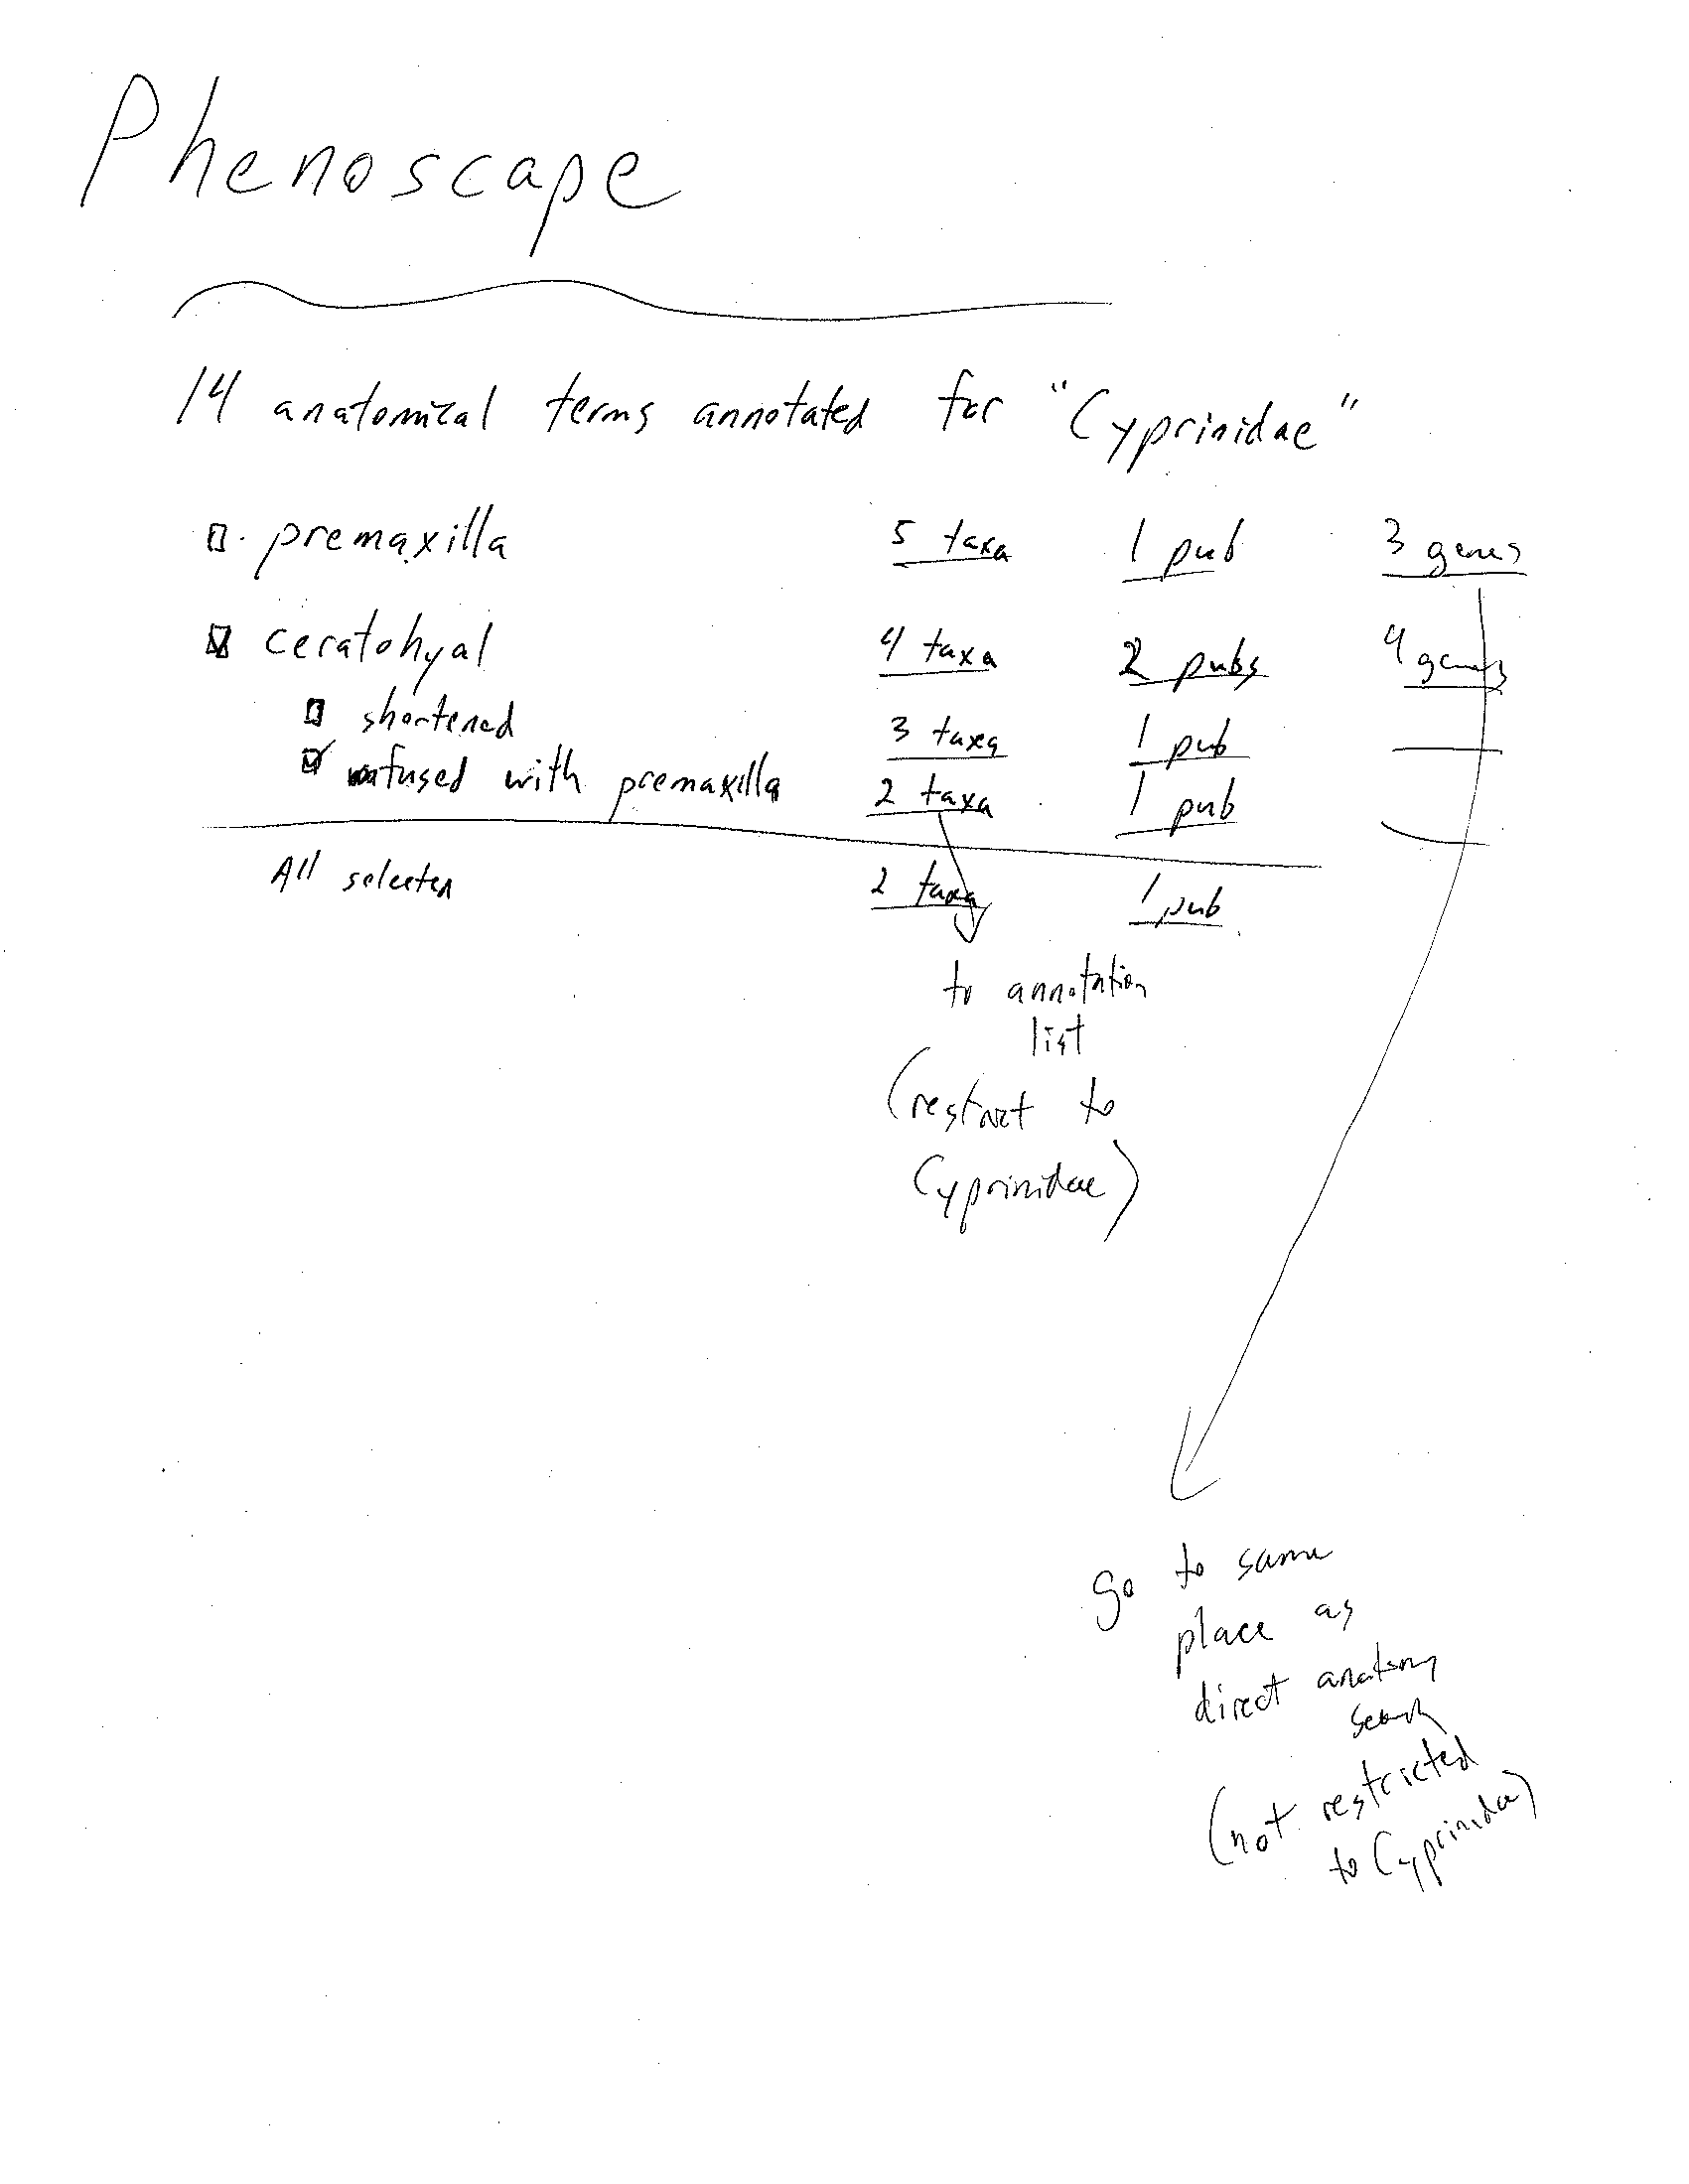 Phenoscape
14 anatomical terms annotated for "Cyprinidae"
premaxilla 5 taxa 1 pub 3 genes
ceratohyal 4 taxa 2 pubs 4 genes
shortened 3 taxa 1 pub
fused with premaxilla 2 taxa 1 pub
All selected 2 taxa 1 pub
to annotation
list
(restrict to
Cyprinidae)
go to same
place as
direct anatomy
search
(not restricted
to Cyprinidae)